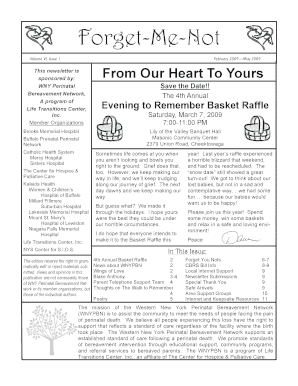 Forget-Me-Not
Volume VI Issue 1
February 2009—May 2009
This newsletter is
sponsored by:
WNY Perinatal
Bereavement Network,
A program of
Life Transitions Center,
Inc.
Member Organizations
Brooks Memorial Hospital
Buffalo Prenatal Perinatal
Network
Catholic Health System
Mercy Hospital
Sisters Hospital
The Center for Hospice &
Palliative Care
Kaleida Health
Women & Children's
Hospital of Buffalo
Millard Fillmore
Suburban Hospital
Lakeside Memorial Hospital
Mount St. Mary's
Hospital of Lewiston
Niagara Falls Memorial
Hospital
Life Transitions Center, Inc.
NYS Center for S.I.D.S.
The editors reserve the right to gram-
matically edit or reject materials sub-
mitted. Views and opinions in this
publication are not necessarily those
of WNY Perinatal Bereavement Net-
work or its member organizations, only
those of the individual authors.
From Our Heart To Yours
Save the Date!!
The 4th Annual
Evening to Remember Basket Raffle
Saturday, March 7, 2009
7:00-11:00 PM
Lily of the Valley Banquet Hall
Masonic Community Center
2379 Union Road, Cheektowaga
Sometimes life comes at you when
you aren't looking and bowls you
right to the ground. Grief does that
too. However, we keep making our
way in life, and we keep trudging
along our journey of grief. The next
day dawns and we keep making our
way.
But guess what? We made it
through the holidays. I hope yours
were the best they could be under
our horrible circumstances.
I do hope that everyone tends to
make it to the Basket Raffle this
year! Last year's raffle experienced
a horrible blizzard that weekend,
and had to be rescheduled. The
"snow date" still showed a great
turn-out. We got to think about our
lost babies, but not in a sad and
contemplative way... we had some
fun ... because our babies would
want us to be happy!
Please join us this year! Spend
some money, win some baskets
and relax in a safe and loving envi-
ronment!
Peace
In This Issue:
4th Annual Basket Raffle 2
News about WNYPBN 2
Wings of Love 2
Blake Zelinger 3
Parent Telephone Support Team 4
Thoughts on the Walk to Remember 4
Poetry 5
Forget You Nots 6-7
CBRS Bill Info 8-9
Local Internet Support 9
Newsletter Submissions 9
Special Thank You 9
Safe Arrivals 9
Area Support Groups 10
Internet and Keepsake Resources 11
The mission of the Western New York Perinatal Bereavement Network
(WNYPBN) is to assist the community to meet the needs of people facing the pain
of perinatal death. We believe all people experiencing this loss have the right to
support that reflects a standard of care regardless of the facility where the birth
took place. The Western New York Perinatal Bereavement Network supports an
established standard of care following a perinatal death. We promote standards
of bereavement intervention through educational support, community programs,
and referral services to bereaved parents. The WNYPBN is a program of Life
Transitions Center, Inc., an affiliate of The Center for Hospice & Palliative Care.